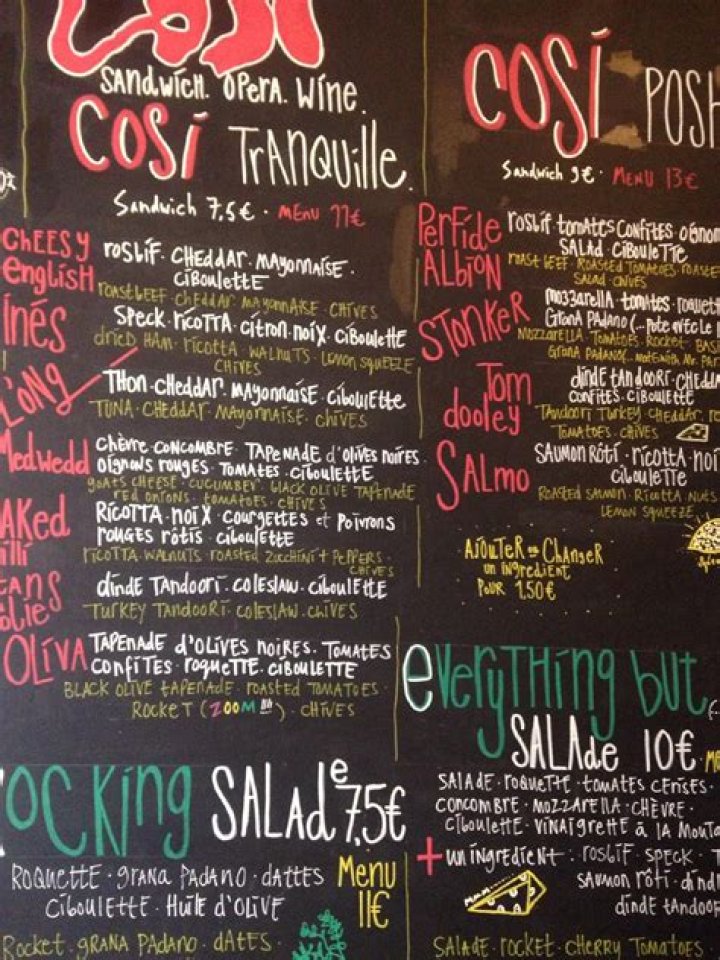 Così
Sandwich. Opera. Wine.
Così Tranquille.
Sandwich 7,5€ · Menu 11€
Cheesy English
rosbif · cheddar · mayonnaise ·
ciboulette
roastbeef · cheddar · mayonnaise · chives
Inés
speck · ricotta · citron · noix · ciboulette
dried ham · ricotta · walnuts · lemon squeeze
chives
Long
thon · cheddar · mayonnaise · ciboulette
tuna · cheddar · mayonnaise · chives
Medwedd
chèvre · concombre · tapenade d'olives noires ·
oignons rouges · tomates · ciboulette
goats cheese · cucumber · black olive tapenade
red onions · tomatoes · chives
aked
illi
ricotta · noix · courgettes et poivrons
rouges rôtis · ciboulette
ricotta walnuts roasted zucchini + peppers ·
chives
ans
olie
dinde tandoori · coleslaw · ciboulette
turkey tandoori · coleslaw · chives
Oliva
tapenade d'olives noires · tomates
confites · roquette · ciboulette
black olive tapenade · roasted tomatoes ·
rocket (zoom) · chives
ocking Salade 7,5€
Menu
11€
roquette · grana padano · dattes
ciboulette · huile d'olive
rocket · grana padano · dates ·
Così Posh
Sandwich 9€ · Menu 13€
Perfide Albion
rosbif · tomates confites · oignon
salad ciboulette
roast beef · roasted tomatoes · roasted
salad · chives
Stonker
mozzarella · tomates · roquette
grana padano (... pote avec le
mozzarella · tomatoes · rocket · bas
grana padano (...
Tom dooley
dinde tandoori · chedda
confites · ciboulette
tandoori turkey · cheddar · ro
tomatoes · chives
Salmo
saumon rôti · ricotta · noi
ciboulette
roasted salmon · ricotta
lemon squeeze
Ajouter ou changer
un ingrédient
pour 1,50€
everything but
Salade 10€
salade · roquette · tomates cerises ·
concombre · mozzarella · chèvre ·
ciboulette · vinaigrette à la mouta
+ un ingredient : rosbif · speck · T
saumon rôti · dind
dinde tandoor
salade · rocket · cherry tomatoes ·